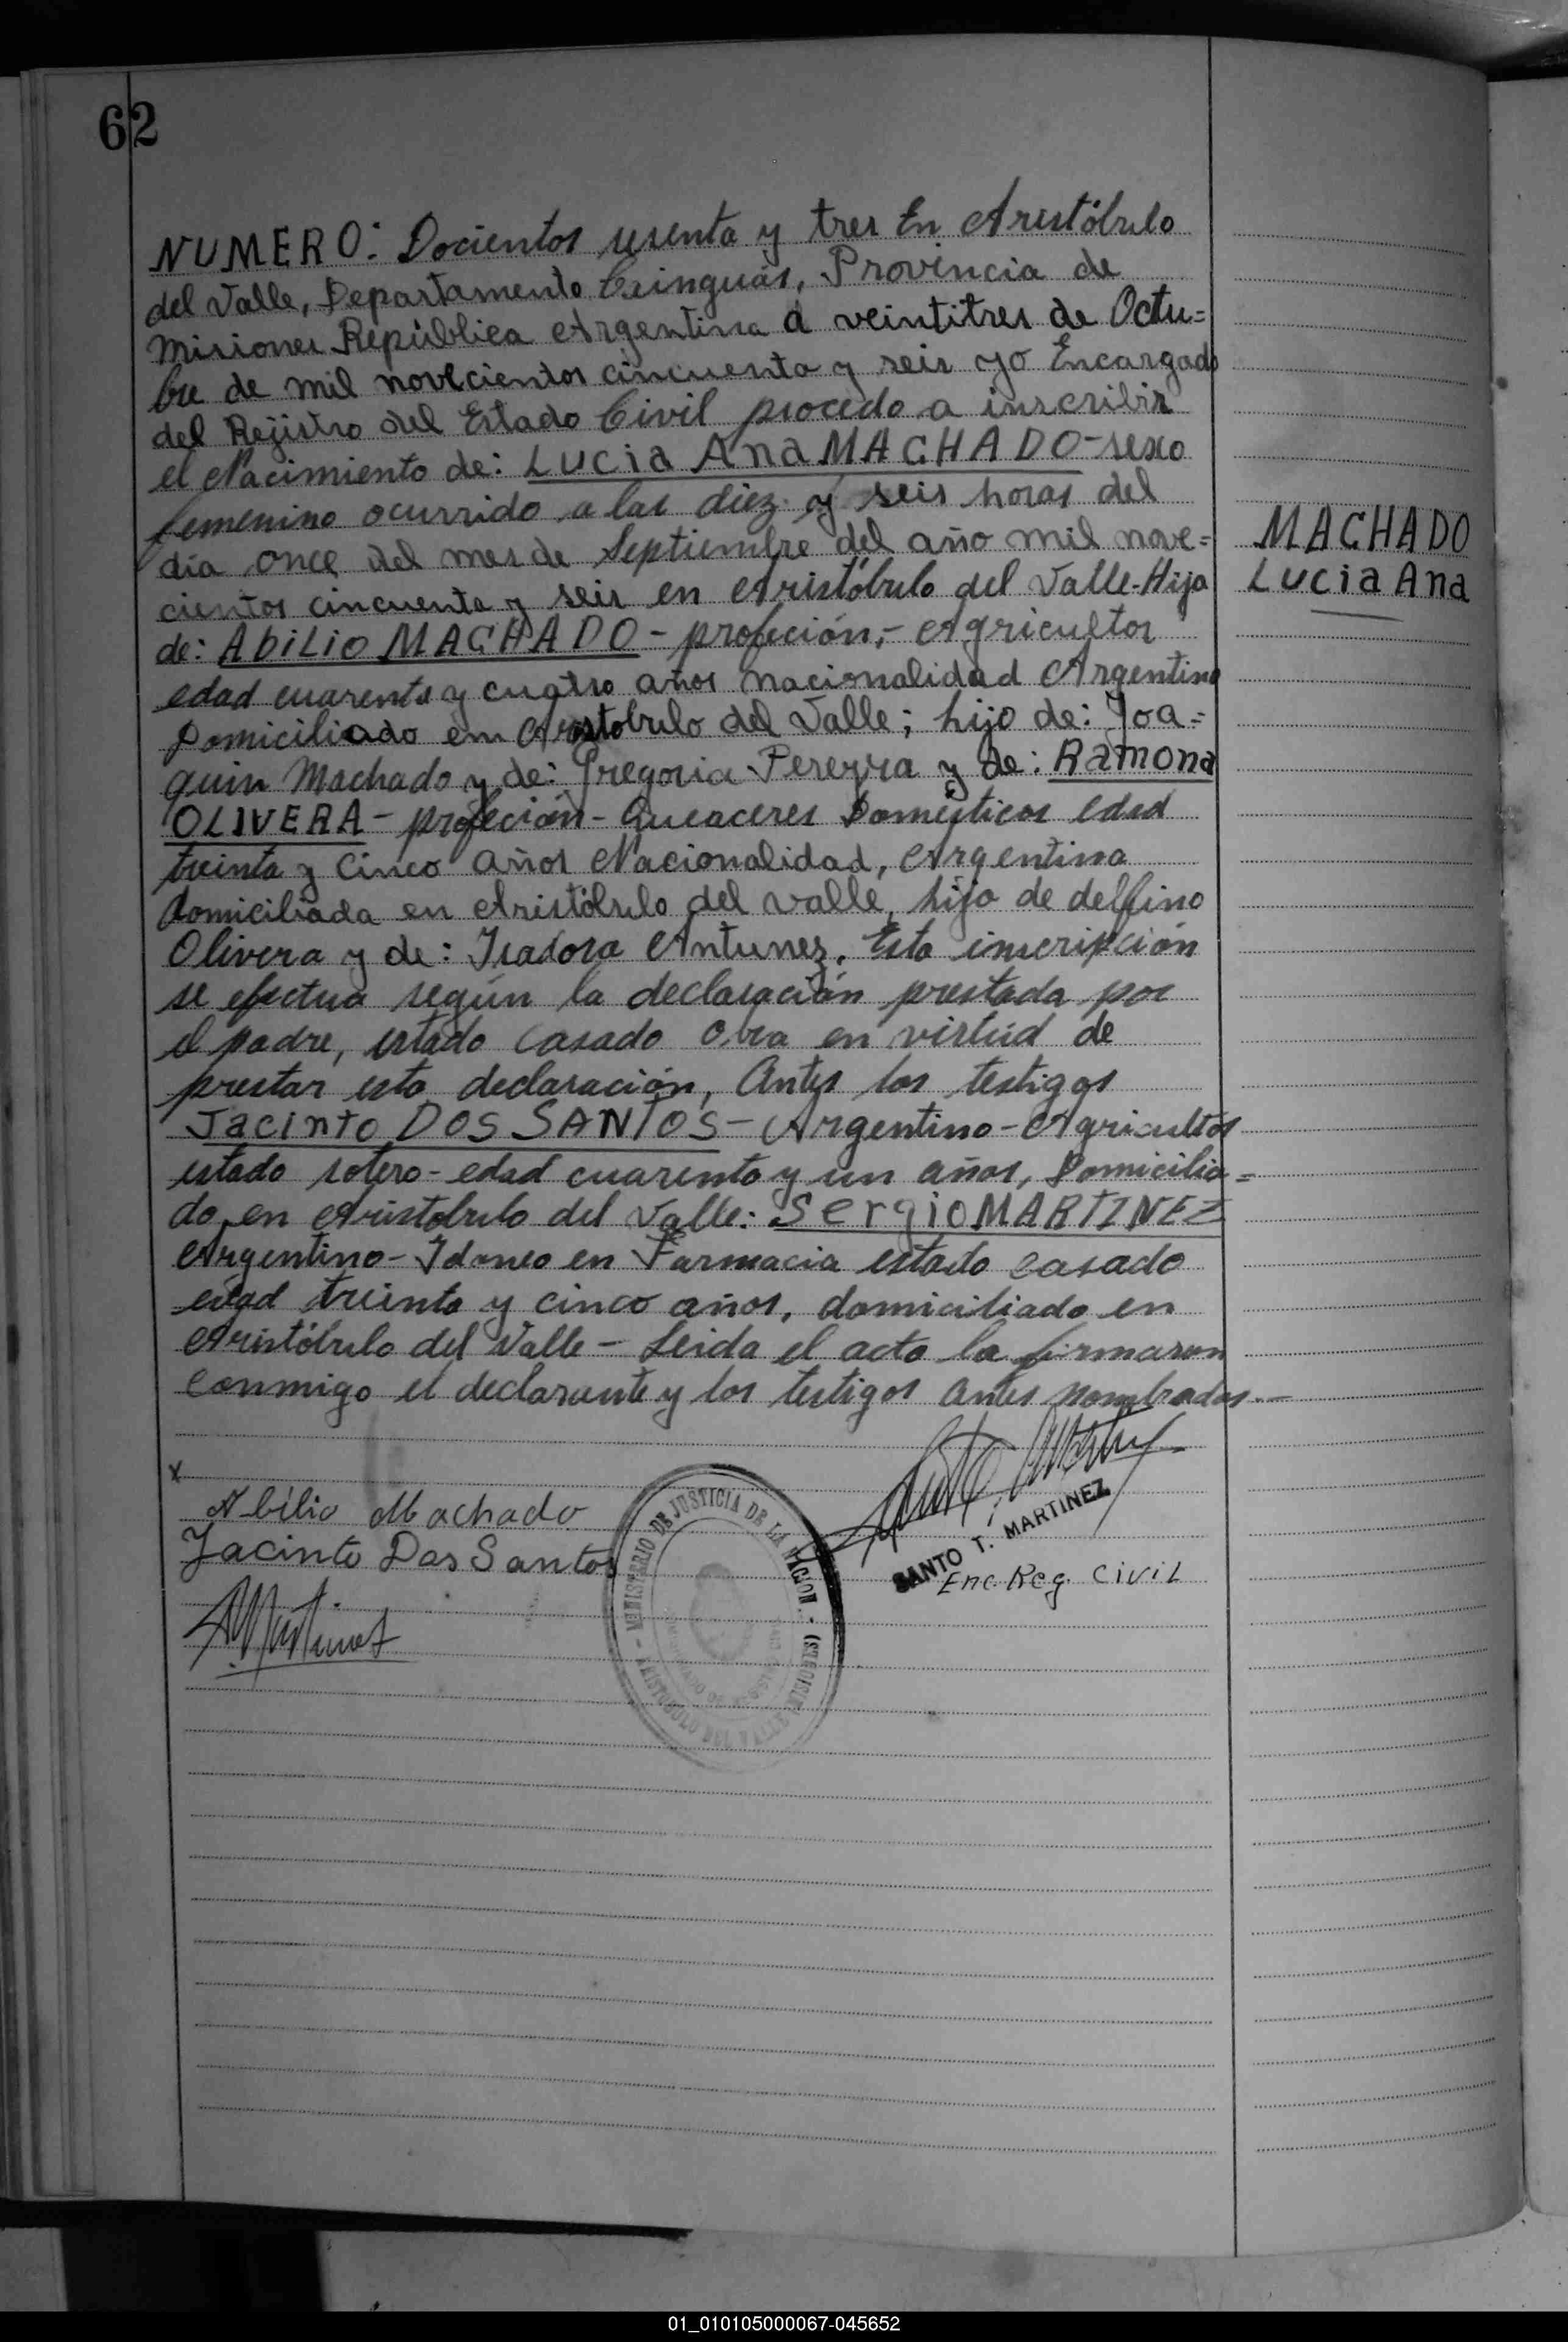 62
NUMERO: Docientos sesenta y tres En Aristóbulo
del Valle, Departamento Cainguás, Provincia de
Misiones República Argentina a veintitres de Octu=
bre de mil novecientos cincuenta y seis yo Encargado
del Rejistro del Estado Civil procedo a inscribir
el Nacimiento de: LUCia ANa MACHADO-sexo
femenino ocurrido a las diez y seis horas del
día once del mes de Septiembre del año mil nove=
cientos cincuenta y seis en Aristóbulo del Valle-Hija
de: AbiLio MACHADO - profeción,- Agricultor
edad cuarenta y cuatro años nacionalidad Argentino
Domiciliado em Aristobulo del Valle; hijo de: Joa=
quin Machado y de: Gregoria Pereyra y de: Ramona
OLIVERA - profeción - Queaceres Domésticos edad
treinta y Cinco años Nacionalidad, Argentina
domiciliada en Aristóbulo del valle, hija de delfino
Olivera y de: Isadora Antunez. Esta inscripción
se efectua según la declaración prestada por
el padre, estado Casado obra en virtúd de
prestar esta declaración, Antes los testigos
Jacinto DOS SANTOS - Argentino - Agricultor
estado sotero - edad cuarenta y un años, Domicilia=
do en Aristobulo del Valle: Sergio MARTINEZ
Argentino - Idoneo en Farmacia estado casado
edad treinta y cinco años, domiciliado en
Aristóbulo del Valle - Leida el acta la firmaron
conmigo el declarante y los testigos antes nombrados.-
MACHADO
Lucia Ana
x
Abílio Machado
Jacinto Dos Santos
MINISTERIO DE JUSTICIA DE LA NACION. - (MISIONES)
ARISTOBULO DEL VALLE
SANTO T. MARTINEZ
Enc. Reg. CiviL
01_010105000067-045652